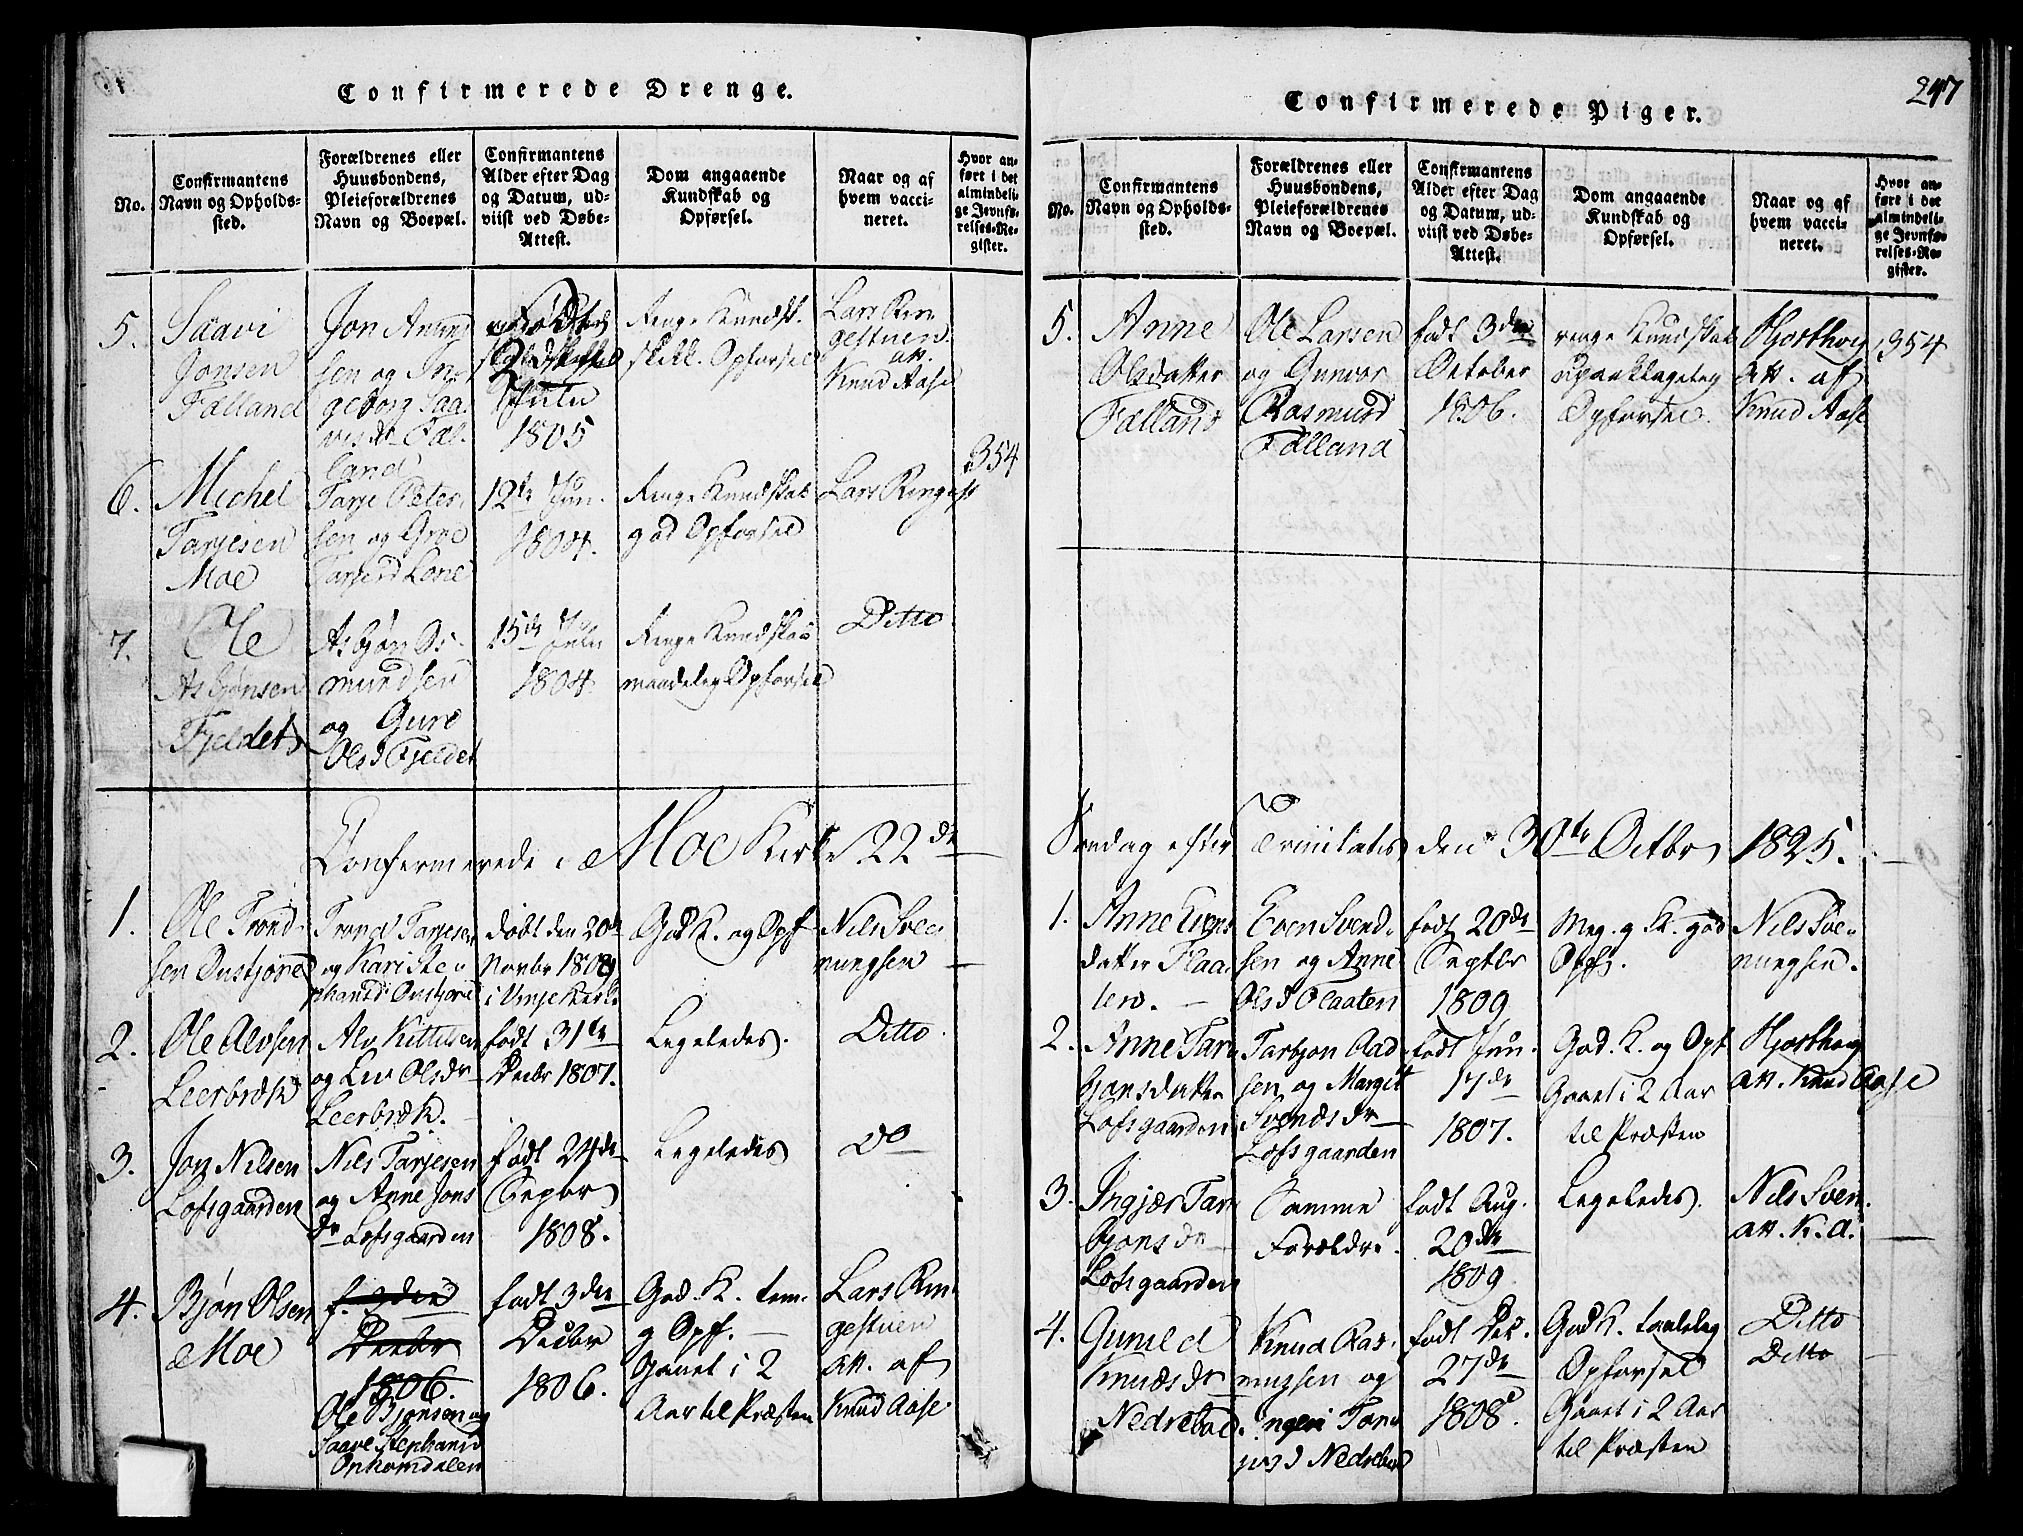 Confirmerede Drenge.
No.
Confirmantens
Navn og Opholds-
sted.
Forældrenes eller
Huusbondens,
Pleieforældrenes
Navn og Boepæl.
Confirmantens
Alder efter Dag
og Datum, ud-
viist ved Døbe-
Attest.
Dom angaaende
Kundskab og
Opførsel.
Naar og af
hvem vacci-
neret.
Hvor an-
ført i det
almindeli-
ge Jevnfø-
relses-Re-
gister.
5.
Saavi
Jonsen
Fælland
Jon
sen og In-
geborg Saa-
visdr Fæl-
land
Født
2
1805
Ringe Kundsk.
skikk. Opførsel
Lars Rin
gestuen
att.
Knud Aase
354
6.
Michel
Tarjesen
Moe
Tarje Peter-
sen og Groe
Tarjesd Lone
12te Jun.
1804.
Ringe Kundskab
god Opførsel
Lars Ringest
7.
Ole
Asbjønsen
Fjeldet
Asbjøn Os-
mundsen
og Guro
Olsd Fjeldet
15de
1804.
Ringe Kundskab
maadeleg Opførsel
Ditto
Confermerede i Moe Kirke 22de
1.
Ole Trond-
sen Oustjore
Trond Tarjesen
og Kari Ste-
phansd Oustjore
født den 20de
Novbr 1808
i Vinje
God K. og Opf
Nils Sve-
nungsen
2.
Ole Alvsen
Leerbræk
Alv Kittilsen
og Liv Olsdr
Leerbræk.
født 31te
Decbr 1807.
Legeledes.
Ditto.
3.
Jon Nilsen
Lofsgaarden
Nils Tarjesen
og Anne Jons
dr Lofsgaarden
født 24de
Septbr
1808.
Legeledes
do
4.
Bjøn Olsen
Moe
f. 3die
Decbr
1806.
Ole Bjønsen og
Saave Stephansd
Onhomdalen
født 3die
Decbr
1806.
God K. tem-
g Opf.
Gaaet i 2
Aar til Præsten
Lars Rin
gestuen
att. af
Knud Aase.
247
Confirmerede Piger.
No.
Confirmantens
Navn og Opholds-
sted.
Forældrenes eller
Huusbondens,
Pleieforældrenes
Navn og Boepæl.
Confirmantens
Alder efter Dag
og Datum, ud-
viist ved Døbe-
Attest.
Dom angaaende
Kundskab og
Opførsel.
Naar og af
hvem vacci-
neret.
Hvor an-
ført i det
almindeli-
ge Jevnfø-
relses-Re-
gister.
5.
Anne
Olsdatter
Fælland
Ole Larsen
og Gunvor
Rasmusd
Fælland
født 3die
October
1806.
ringe Kundskab
upaaklageleg
Opførsel.
Hjorthoy
att. af
Knud Aase
354
Søndag efter Trinitatis den 30te Octbr 1825.
1.
Anne Evens
datter Flaa-
ten.
Even Svend-
sen og Anne
Olsd Flaaten
født 20de
Septbr
1809
Meg. g K. god
Opf.
Nils Sve-
nungsen.
2.
Anne Tar-
bjønsdatter
Lofsgaarden
Tarbjøn Aad
sen og Margit
Svendsdr
Lofsgaarden
født Jun.
17de
1807.
God. K. og Opf
Gaaet i 2 Aar
til Præsten
Hjorthoy
att. Knud Aase
3.
Ingjær Tar-
bjonsdr
Lofsgaarden
Samme
Forældre.
født Aug.
20de
1809
Legeledes.
Nils Sven.
att. K. A.
4.
Gunild
Knudsdr
Nedrebøe.
Knud Ras-
mussen og
Ingeri Tar-
jesd Nedrebøe
født Dec.
27de
1808.
God K. taaleleg
Opførsel
Gaaet i 2 Aar
til Præsten
Ditto
Ditto